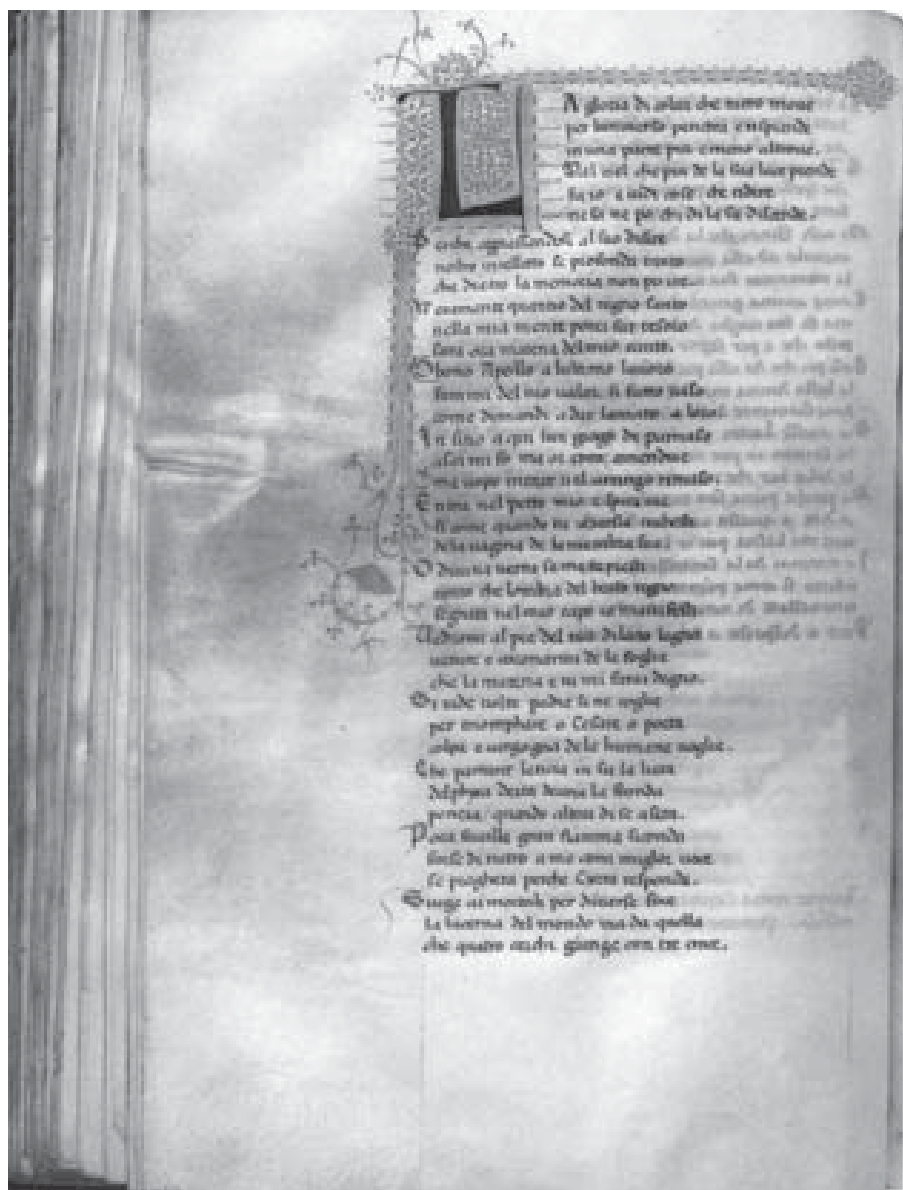 LA gloria di colui che tutto moue
per luniuerso penetra e risplende
in una parte piu e meno altroue.
Nel ciel che piu de la sua luce prende
fu io e uidi cose che ridire
ne sa ne po chi di la su discende.
Perche appressandosi al suo disire
nostro intelletto si profonda tanto
che dietro la memoria non po ire.
Veramente quanto del regno santo
nella mia mente potei far tesoro
sera ora materia del mio canto.
O bono Apollo a lultimo lauoro
fammi del tuo ualor si fatto uaso
come dimandi a dar lamato aloro
In fino a qui lun giogo di parnaso
assai mi fo ma or con amendue
ma uopo intrar nel aringo rimaso.
Entra nel petto mio e spira tue
si come quando tu Marsia traesti
de la uagina de le membra sue
O diuina uertu se mi ti presti
tanto che lombra del beato regno
segnata nel mio capo io manifesti
Vedrami al pie del tuo diletto legno
uenire e coronarmi de la foglie
che la materia e tu mi farai degno.
Si rade uolte padre se ne coglie
per triomphare o Cesare o poeta
colpa e uergogna dele humane uoglie.
Che parturir letitia in su la lieta
delphica deita deuria la fronda
peneia quando alcun di se asseta.
Poca fauilla gran fiamma seconda
forse di retro a me con miglior uoce
se preghera perche Cirra responda.
Surge ai mortali per diuerse foce
la lucerna del mondo ma da quella
che quatro cerchi giunge con tre croce.